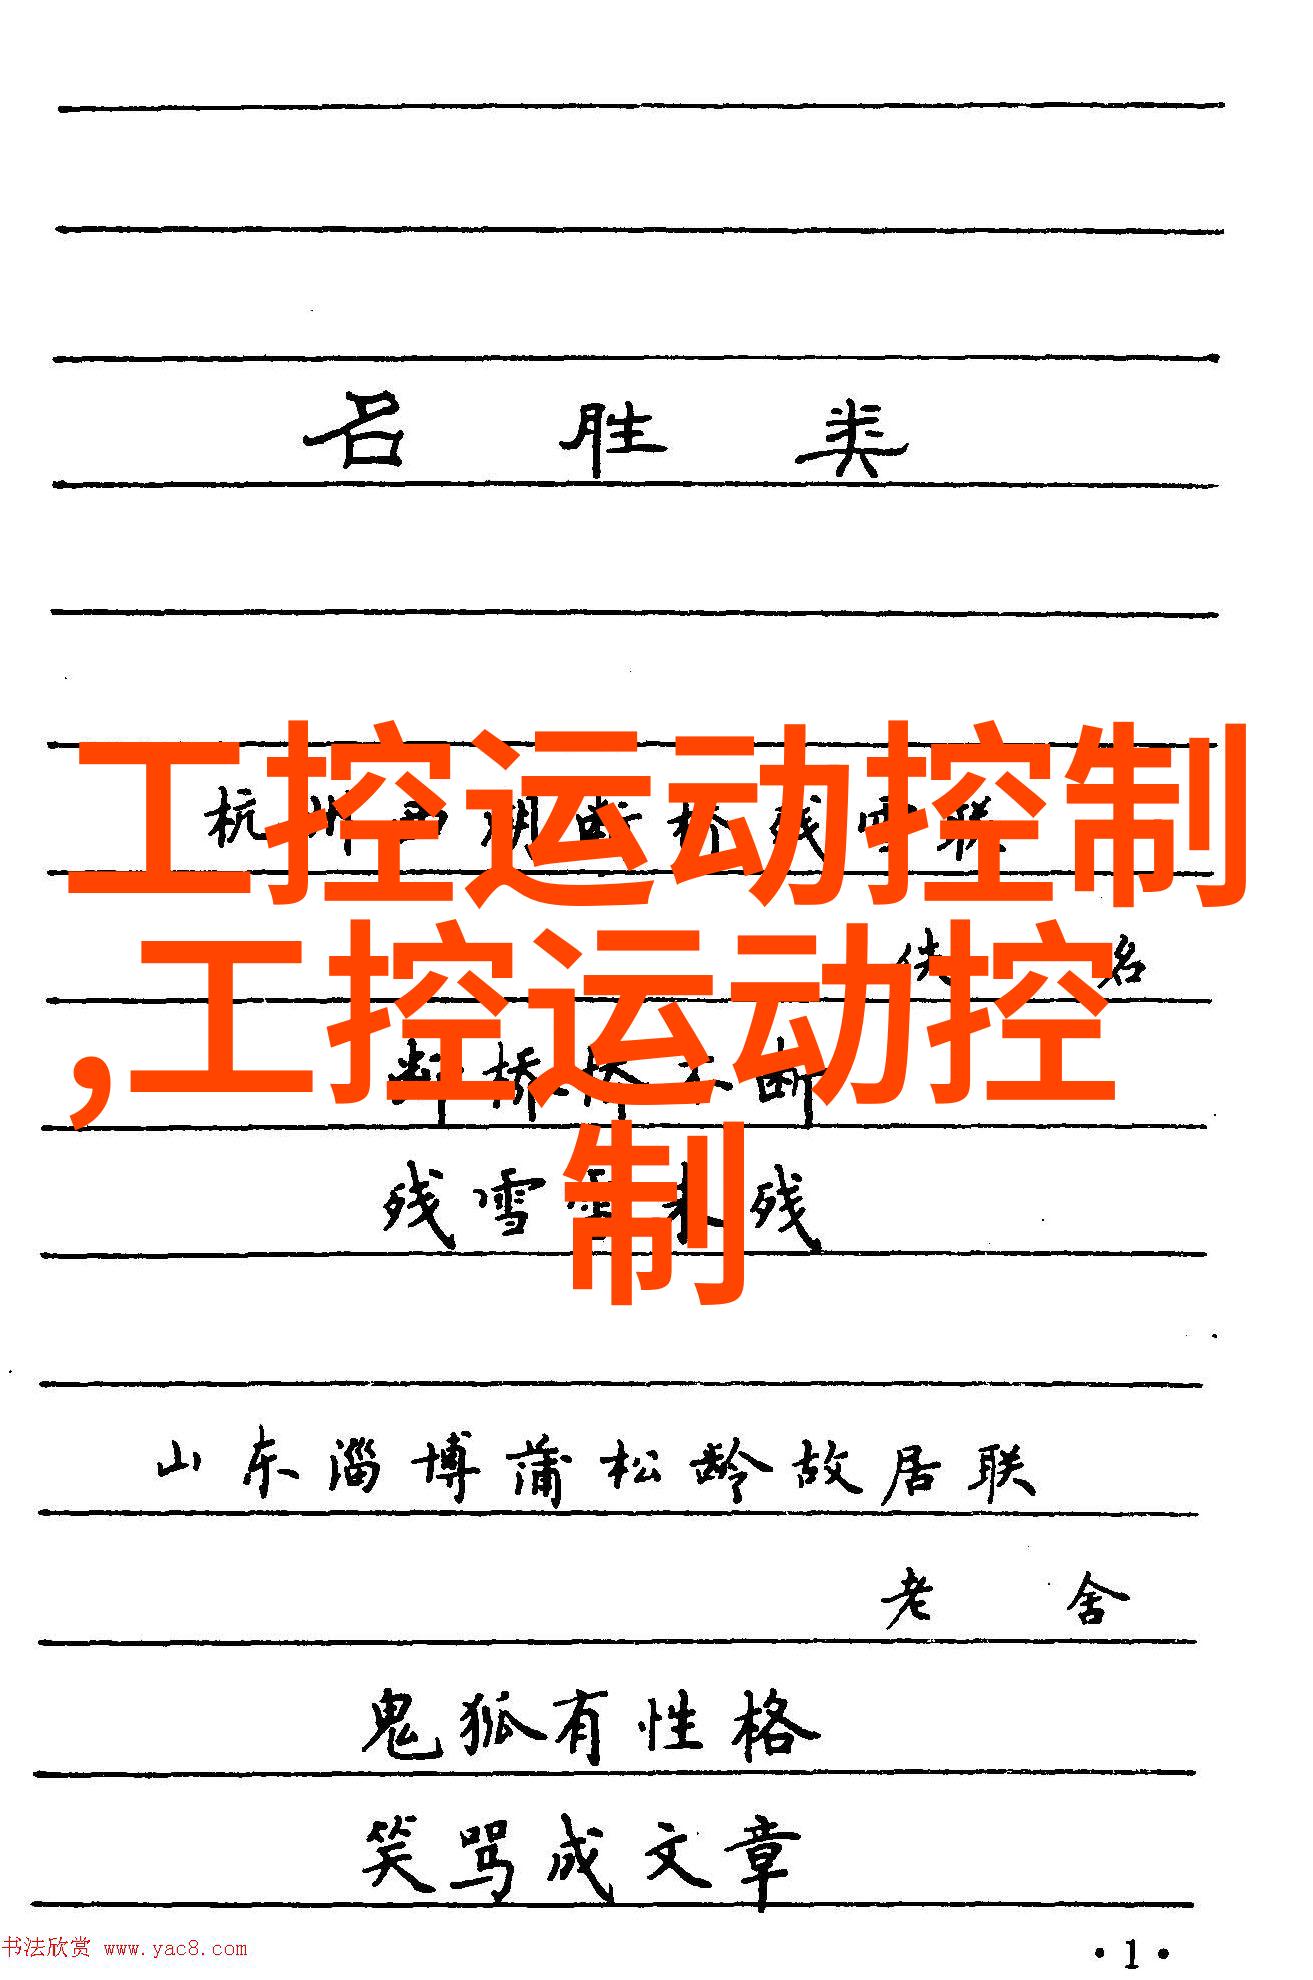 名胜类
杭州西湖断桥残雪联
佚名
断桥桥不断
残雪雪未残
工控运动控制
,工控运动控
制
山东淄博蒲松龄故居联
老舍
鬼狐有性格
笑骂成文章
书法欣赏 www.yac8.com
·1·